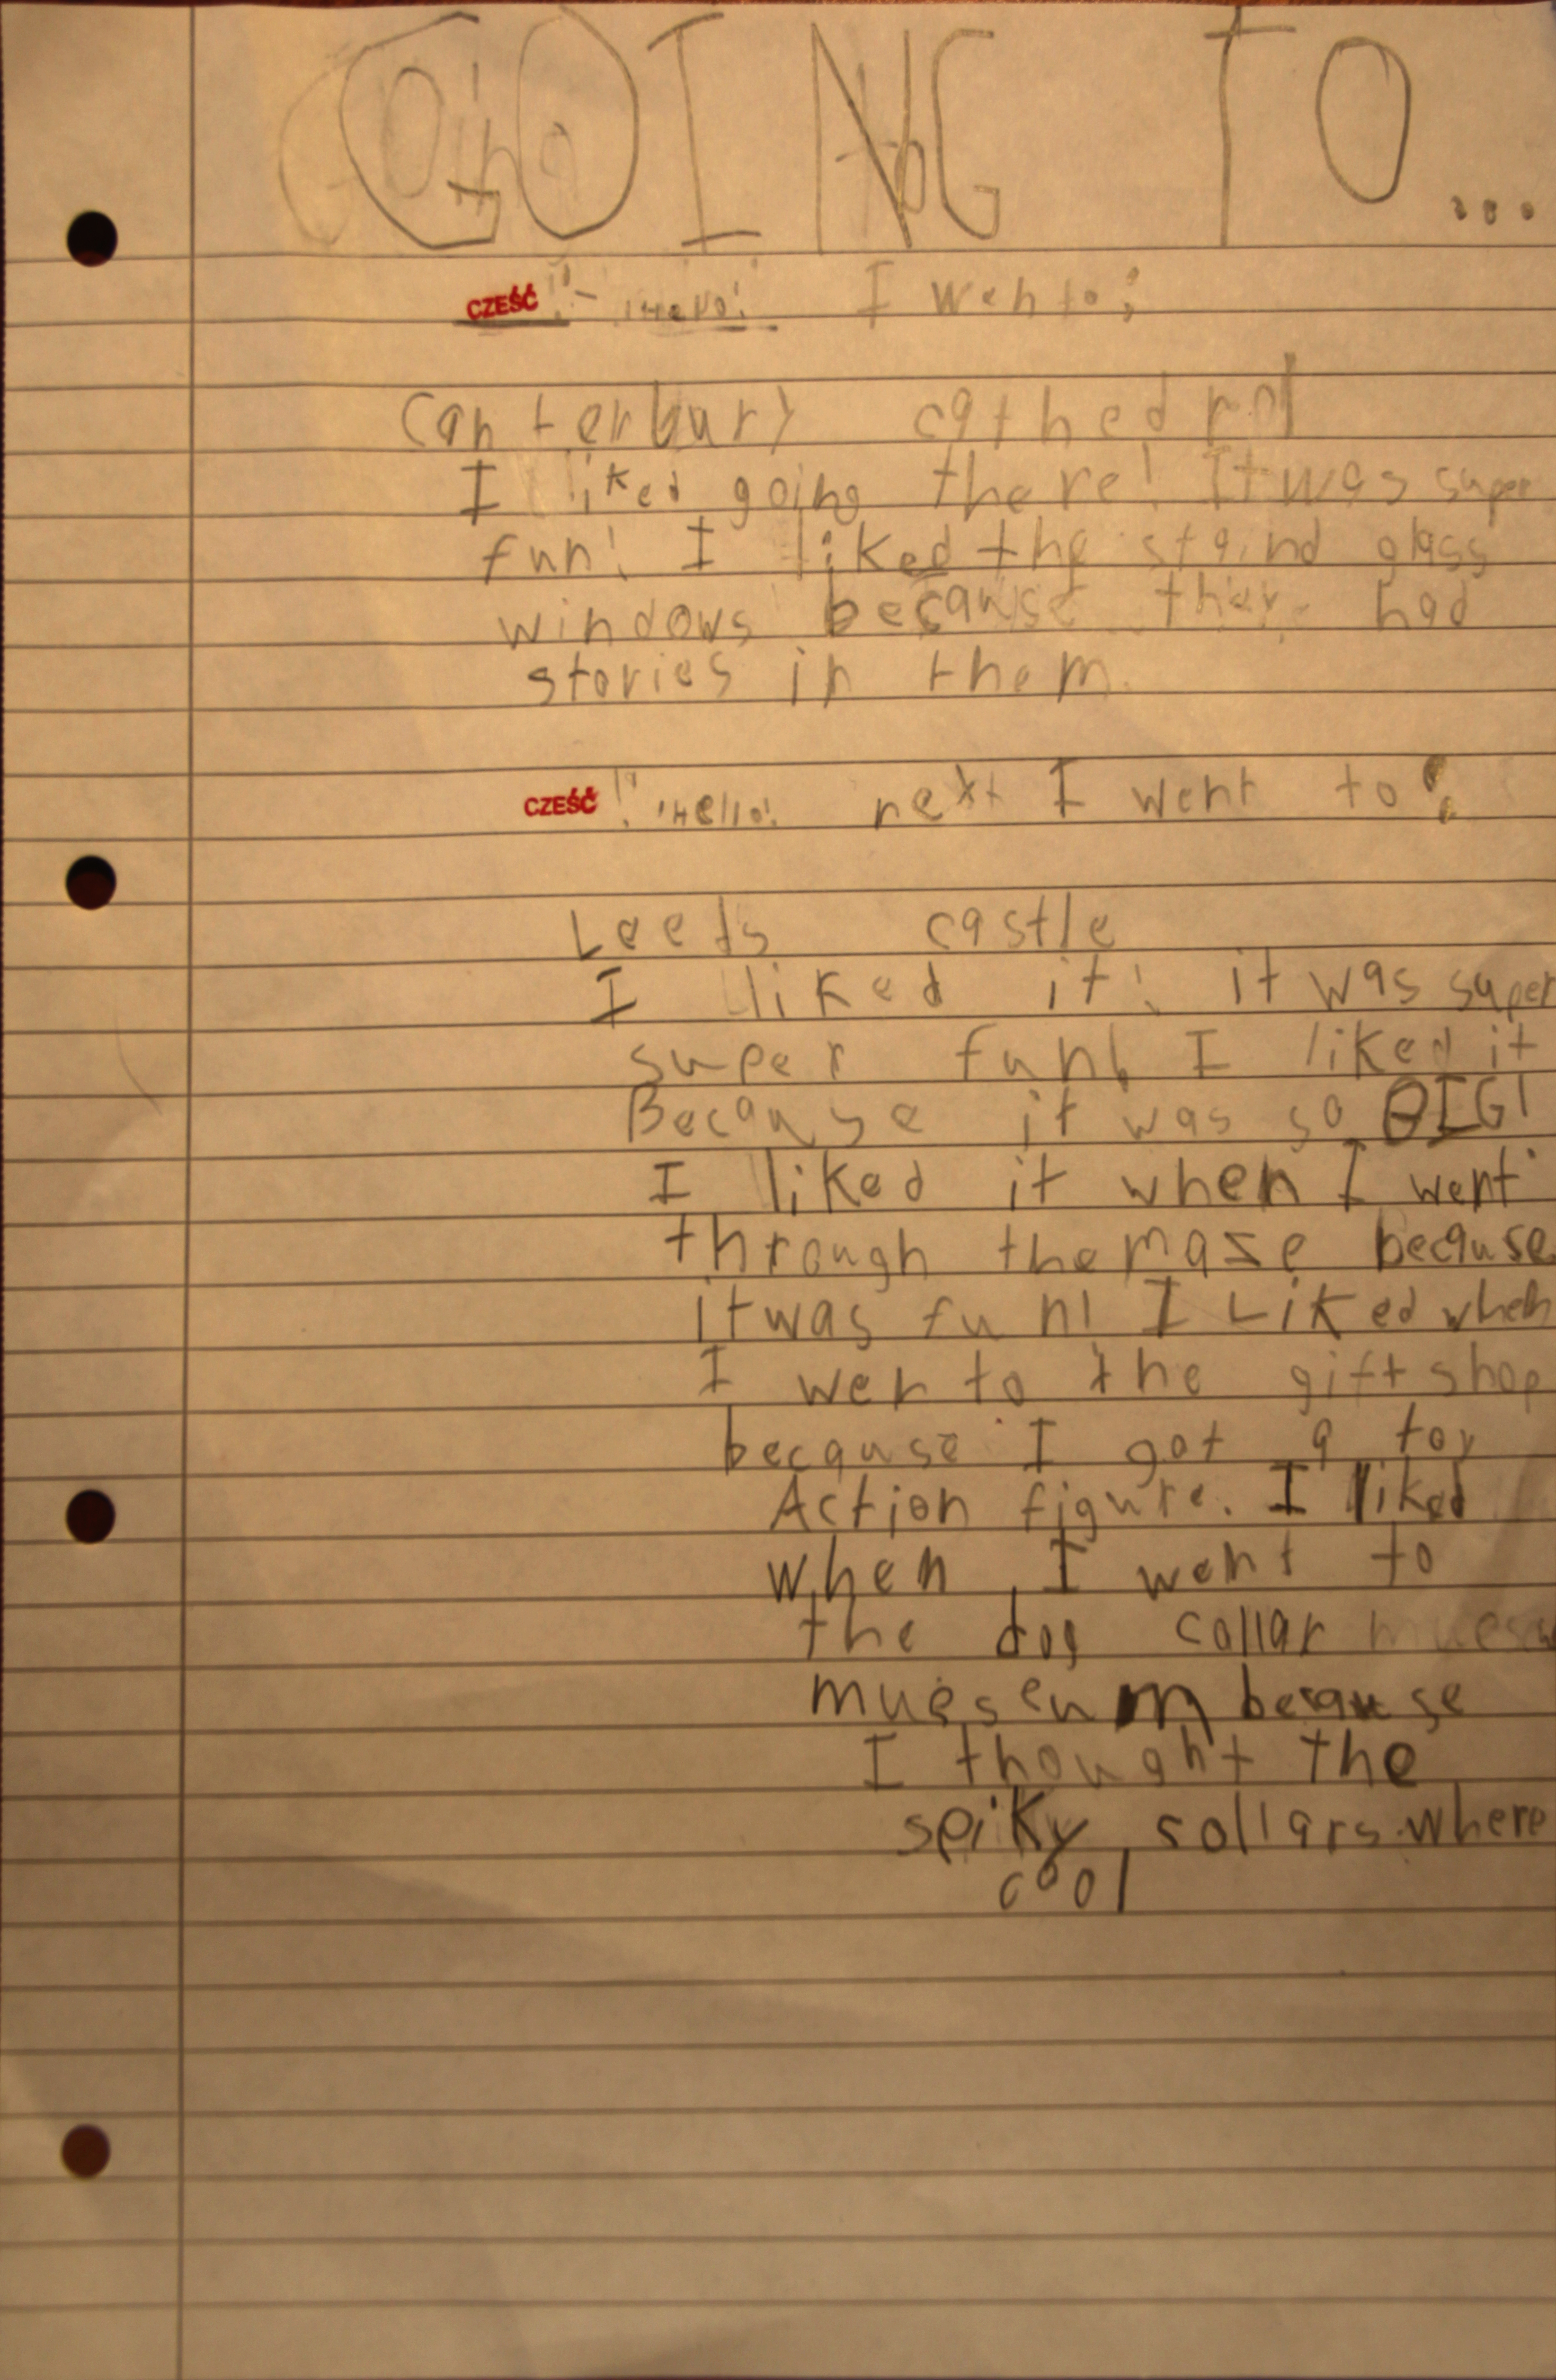 GOING TO...
CZEŚĆ! - !Hello! I went to:
Canterbury cathedral
I liked going there! It was super
fun! I liked the staind glass
windows because there had
stories in them.
CZEŚĆ! !Hello! next I went to:
Leeds castle
I liked it! it was super
super fun! I liked it
Because it was so BIG!
I liked it when I went
through the maze because
it was fun! I Liked when
I wen to the gift shop
because I got a toy
Action figure. I liked
when I went to
the dog collar muesu
mueseum because
I thought the
spiky collars where
cool